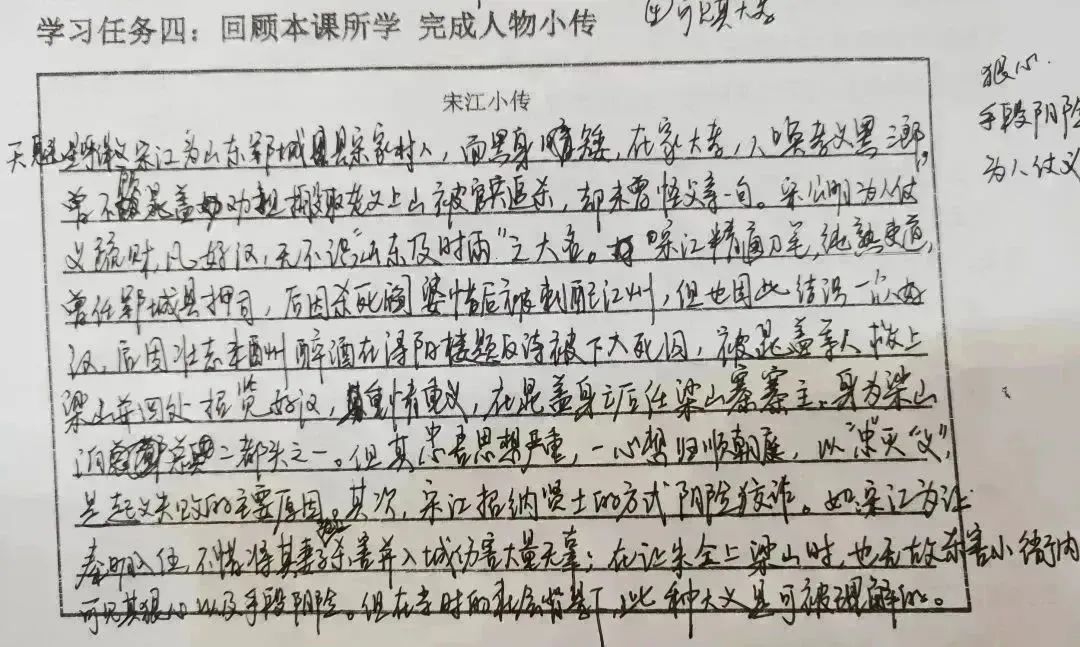 学习任务四：回顾本课所学 完成人物小传
可见其大孝
狠心.
手段阴险
为人仗义
宋江小传
天魁星呼保义宋江为山东郓城县宋家村人，面黑身矮，在家大孝，人唤孝义黑三郎，
曾不上山被官兵追杀，却未曾怪父亲一句。宋公明为人仗
义疏财，凡好汉，无不识“山东及时雨”之大名。宋江精通刀笔，纯熟吏道，
曾任郓城县押司，后因杀死阎婆惜后被刺配江州，但也因此结识一众好
汉，后因壮志未酬醉酒在浔阳楼题反诗被下大死囚，被晁盖等人救上
梁山并四处招览好汉，重情重义，在晁盖身亡后任梁山寨寨主。身为梁山
泊二都头之一。但其忠君思想严重，一心想归顺朝庭，以“忠”灭“义”，
是起义失败的主要原因。其次，宋江招纳贤士的方式阴险狡诈。如宋江为让
秦明入伍不惜将其妻子杀害并入城伤害大量无辜；在让朱仝上梁山时，也无故杀害小衙内
可见其狠心以及手段阴险。但在当时的社会背景下，此种大义是可被理解的。